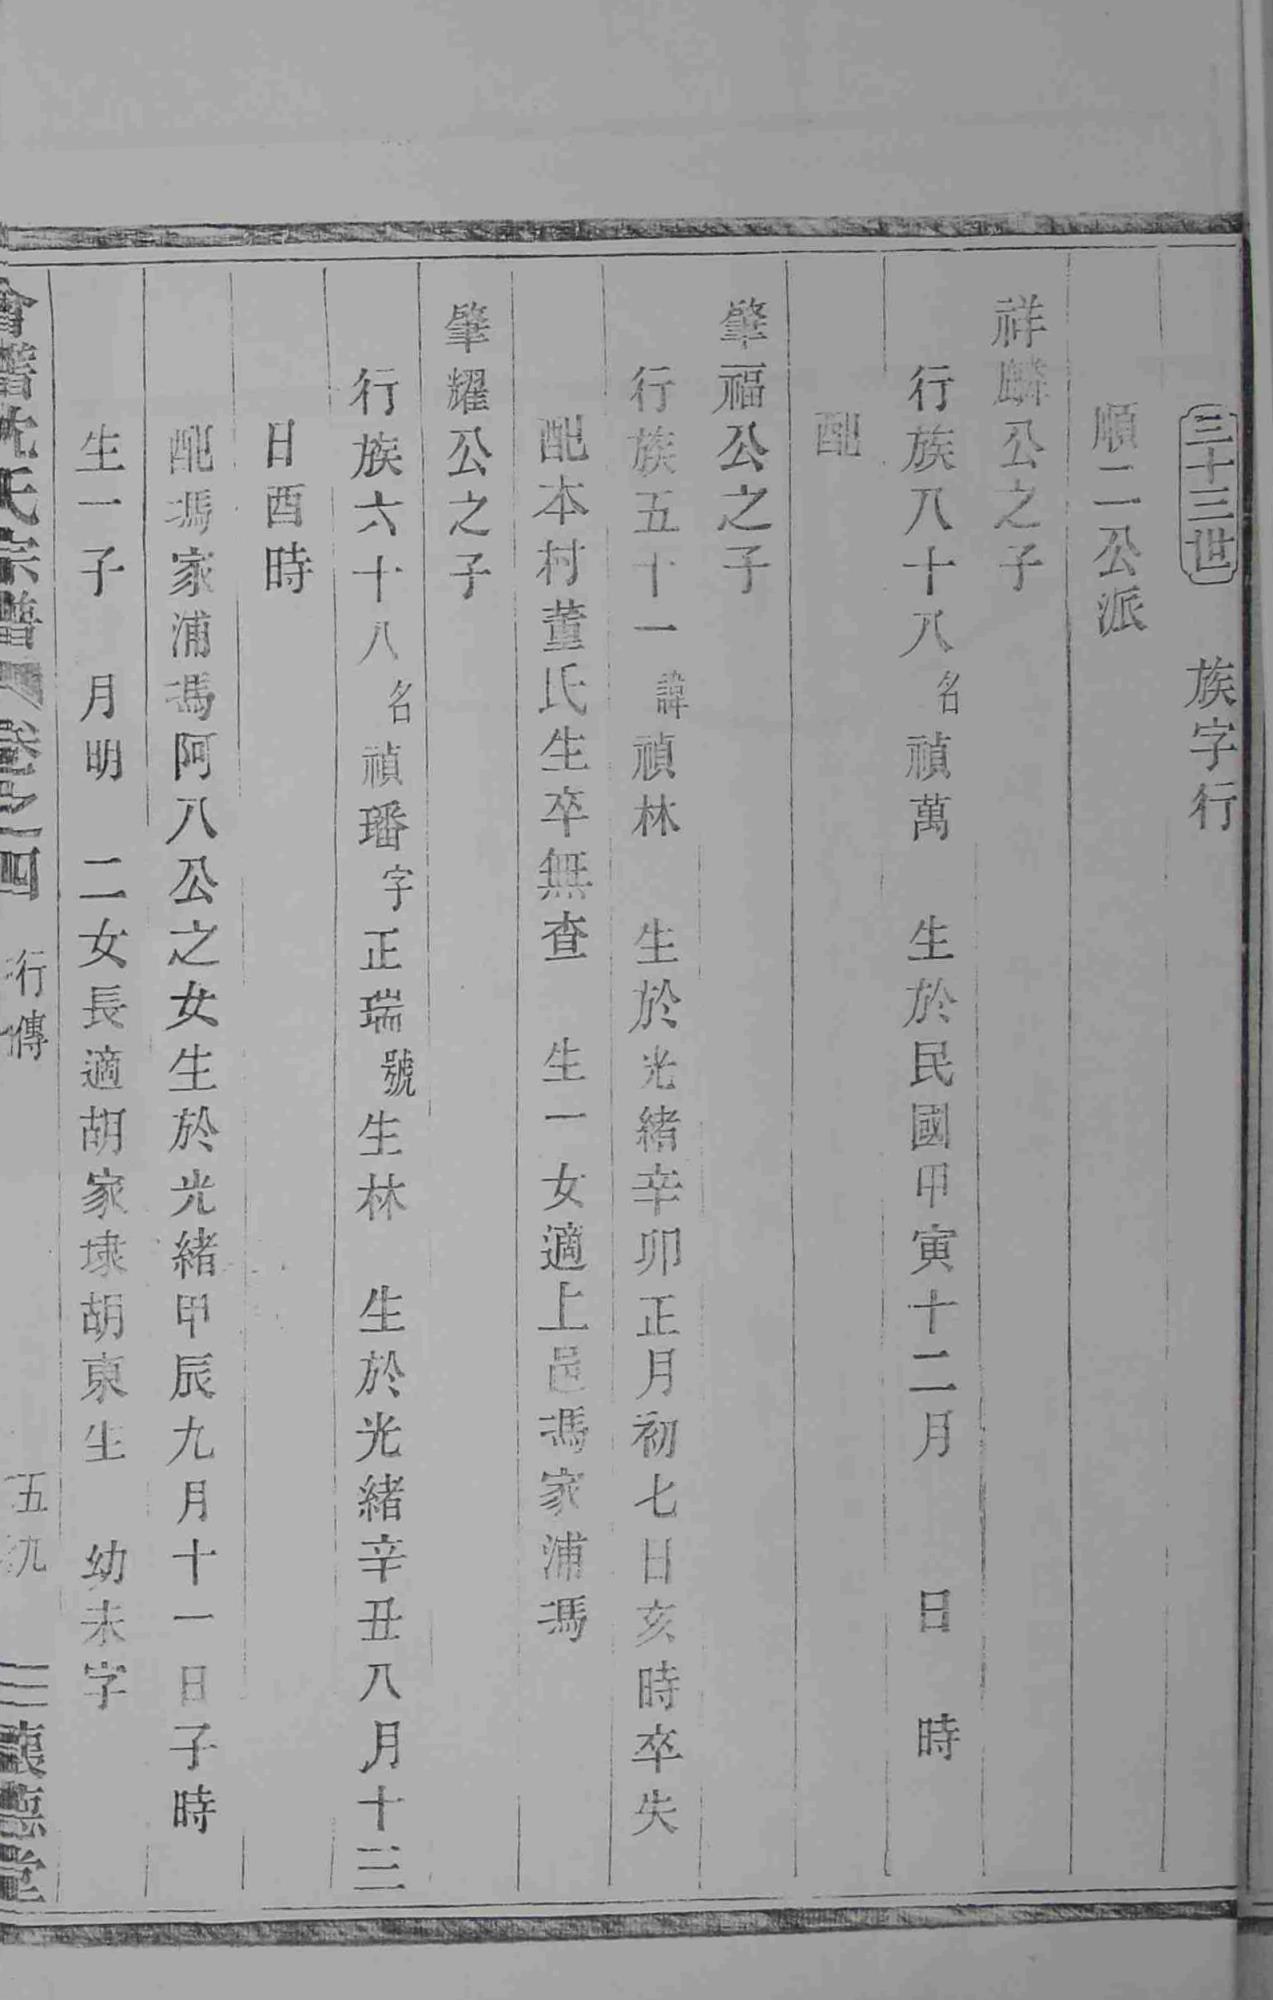 三十三世　族字行
順二公派
祥麟公之子
行族八十八名禎萬　生於民國甲寅十二月　　日　時
配
肇福公之子
行族五十一諱禎林　生於光緒辛卯正月初七日亥時卒失
配本村董氏生卒無查　生一女適上邑馮家浦馮
肇耀公之子
行族六十八名禎璠字正瑞號生林　生於光緒辛丑八月十三
日酉時
配馮家浦馮阿八公之女生於光緒甲辰九月十一日子時
生一子　月明　二女長適胡家埭胡東生　幼未字
會譜沈氏宗譜　卷之四　行傳　五九　懷德堂